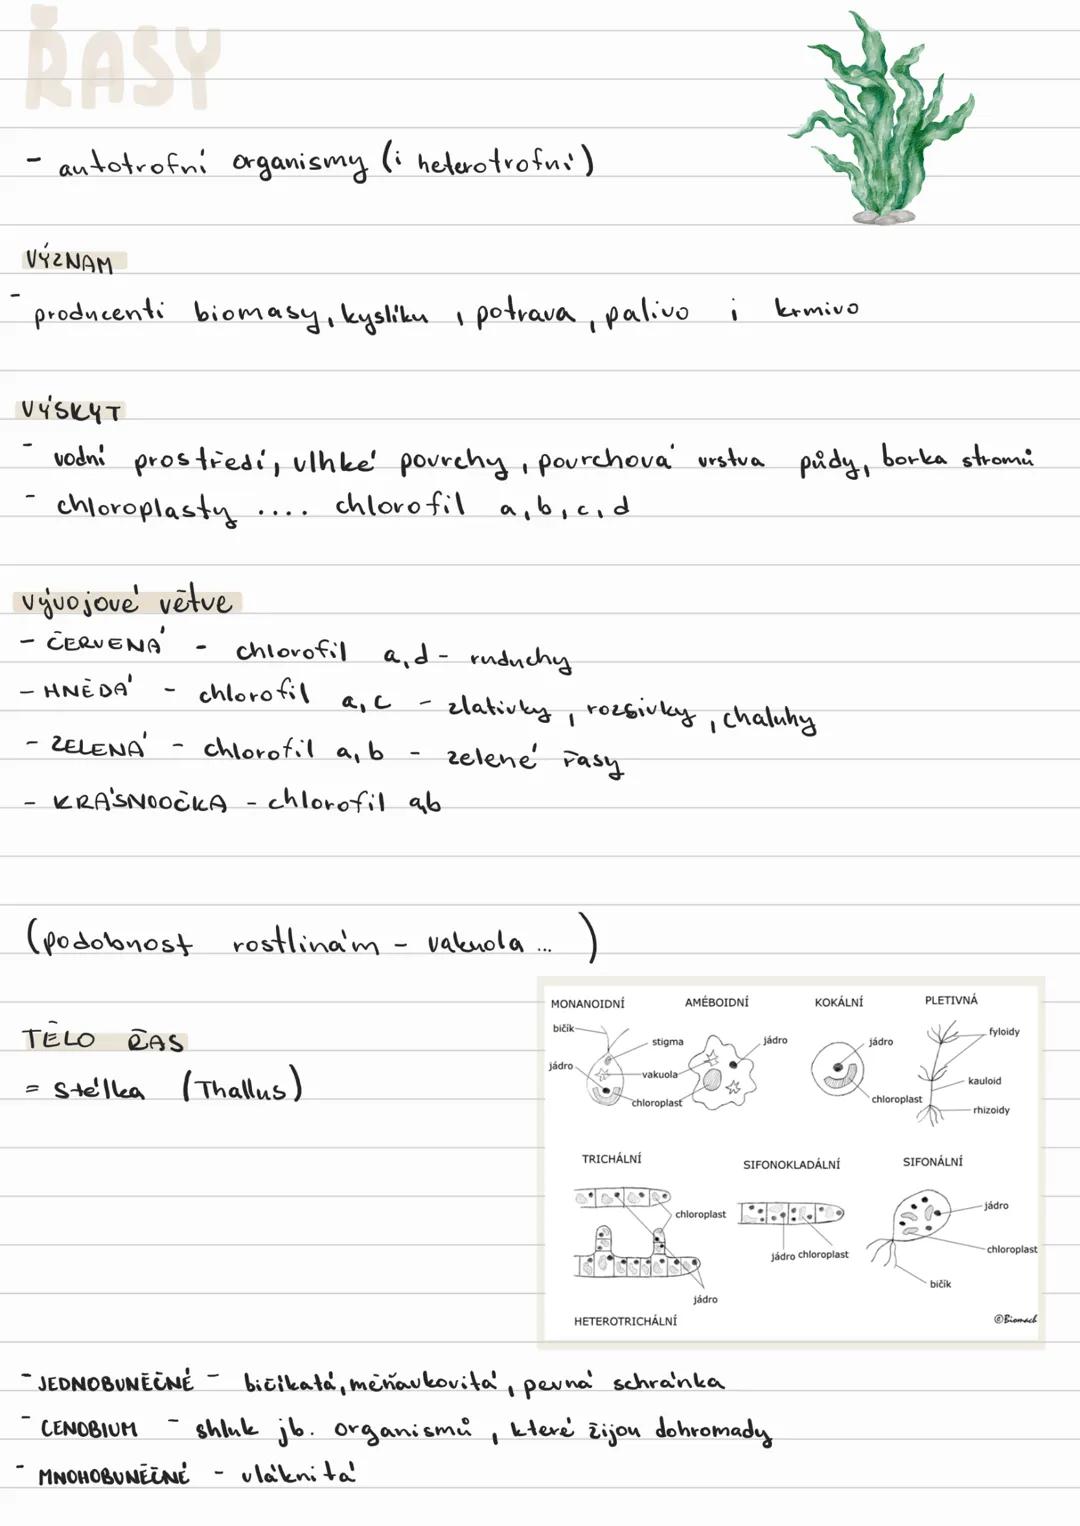 ŘASY
- autotrofní organismy (i heterotrofní)
VÝZNAM
- producenti biomasy, kyslíku, potrava, palivo i krmivo
VÝSKYT
- vodní prostředí, vlhké povrchy, povrchová vrstva půdy, borka stromů
- chloroplasty .... chlorofil a, b, c, d
vývojové větve
- ČERVENÁ - chlorofil a, d - ruduchy
- HNĚDÁ - chlorofil a, c - zlativky, rozsivky, chaluhy
- ZELENÁ - chlorofil a, b - zelené řasy
- KRÁSNOOČKA - chlorofil a,b
(podobnost rostlinám - vakuola ... )
TĚLO ŘAS
= stélka (Thallus)
MONANOIDNÍ AMÉBOIDNÍ KOKÁLNÍ PLETIVNÁ
bičík
stigma
jádro
jádro
fyloidy
jádro
vakuola
kauloid
chloroplast
chloroplast
rhizoidy
TRICHÁLNÍ SIFONOKLADÁLNÍ SIFONÁLNÍ
chloroplast
jádro
jádro chloroplast
chloroplast
bičík
jádro
HETEROTRICHÁLNÍ
©Biomach
- JEDNOBUNĚČNÉ - bičíkatá, měňavkovitá, pevná schránka
- CENOBIUM - shluk jb. organismů, které žijou dohromady
- MNOHOBUNĚČNÉ - vláknitá